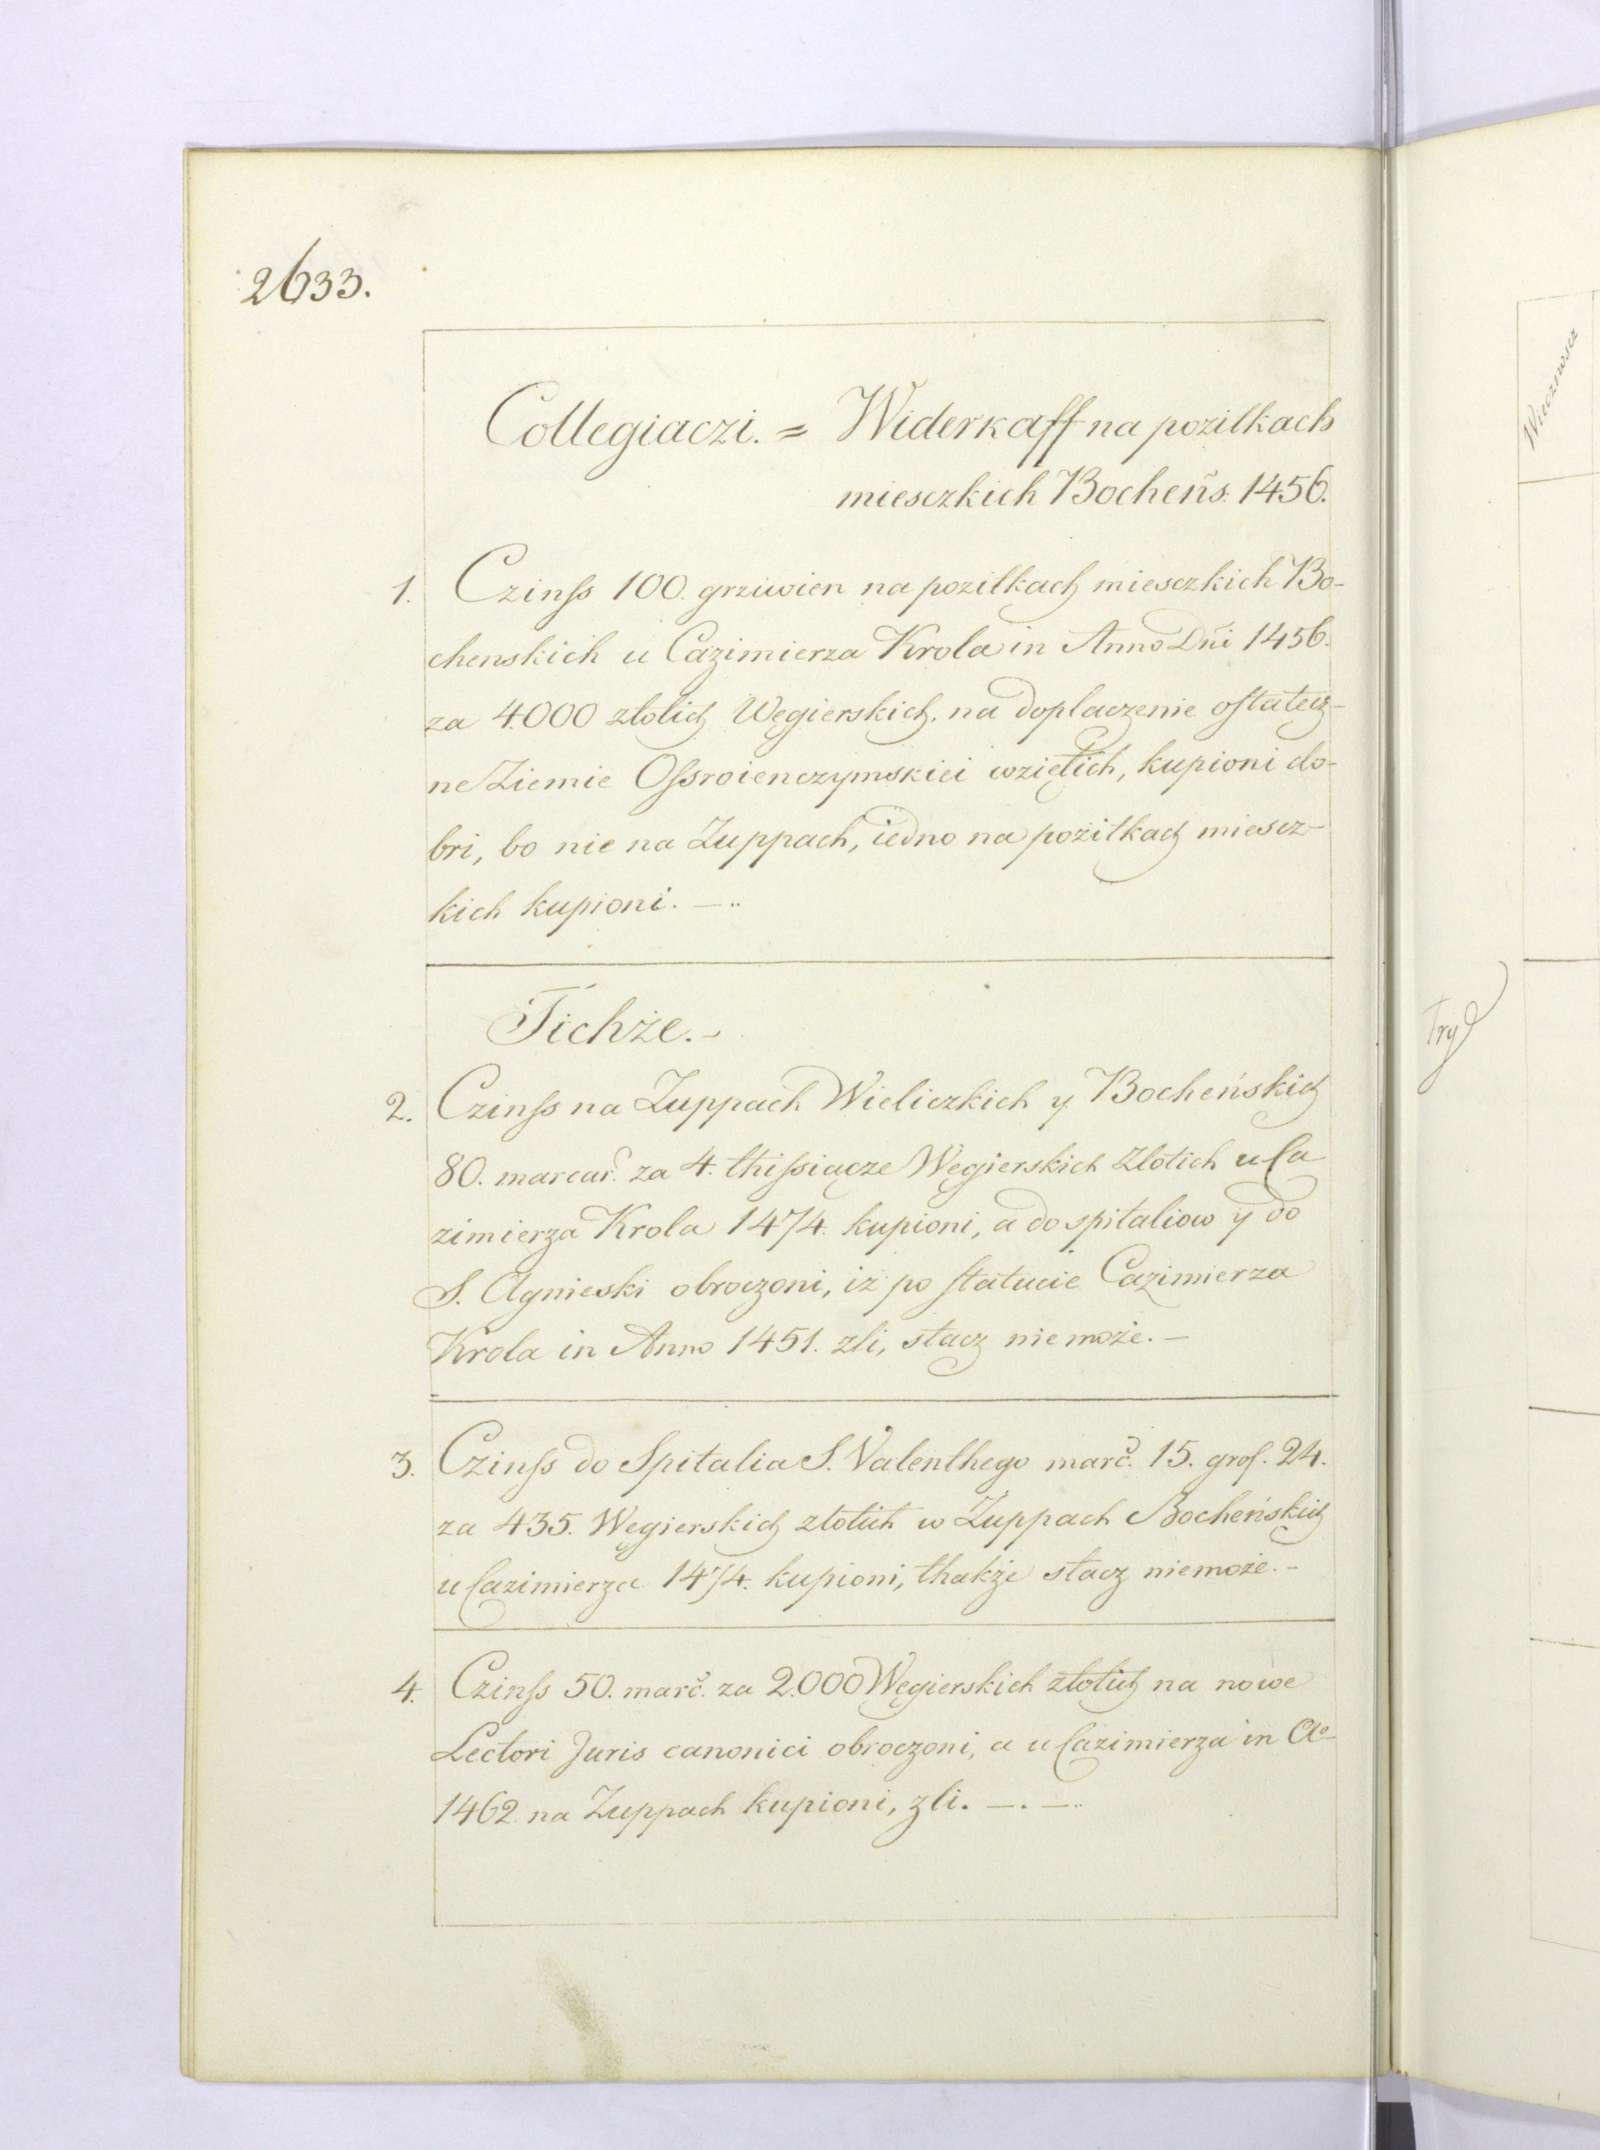 2633.
Collegiaczi. = Widerkaff na pozitkach
miesczkich Bocheńs. 1456.
1. Czinss 100. grziwien na pozitkach miesczkich Bo-
chenskich u Cazimierza Krola in Anno Dni 1456.
za 4000 złotich Węgierskich, na doplaczenie ostatecz-
ne Ziemie Ossroienczymskiei wziętich, kupioni do-
bri, bo nie na Zuppach, iedno na pożitkach miescz-
kich kupioni. —..
Tichże.–
2. Czinss na Zuppach Wieliczkich y Bocheńskich
80. marcar. za 4. thissiącze Węgierskich Złotich u Ca
zimierza Krola 1474. kupioni, a do spitaliow y do
S. Agnieski obroczoni, iż po statucie Cazimierza
Krola in Anno 1451. zli, stacz nie może. —
3. Czinss do Spitalia S. Valenthego marc. 15. gros. 24.
za 435. Węgierskich złotich w Zuppach Bocheńskich
u Cazimierza 1474. kupioni, thakże stacz niemoże. –
4. Czinss 50. marc. za 2.000 Węgierskich złotich na nowe
Lectori Juris canonici obroczoni, a u Cazimierza in Aº
1462. na Zuppach kupioni, zli. —. —..
Wieczność
Try